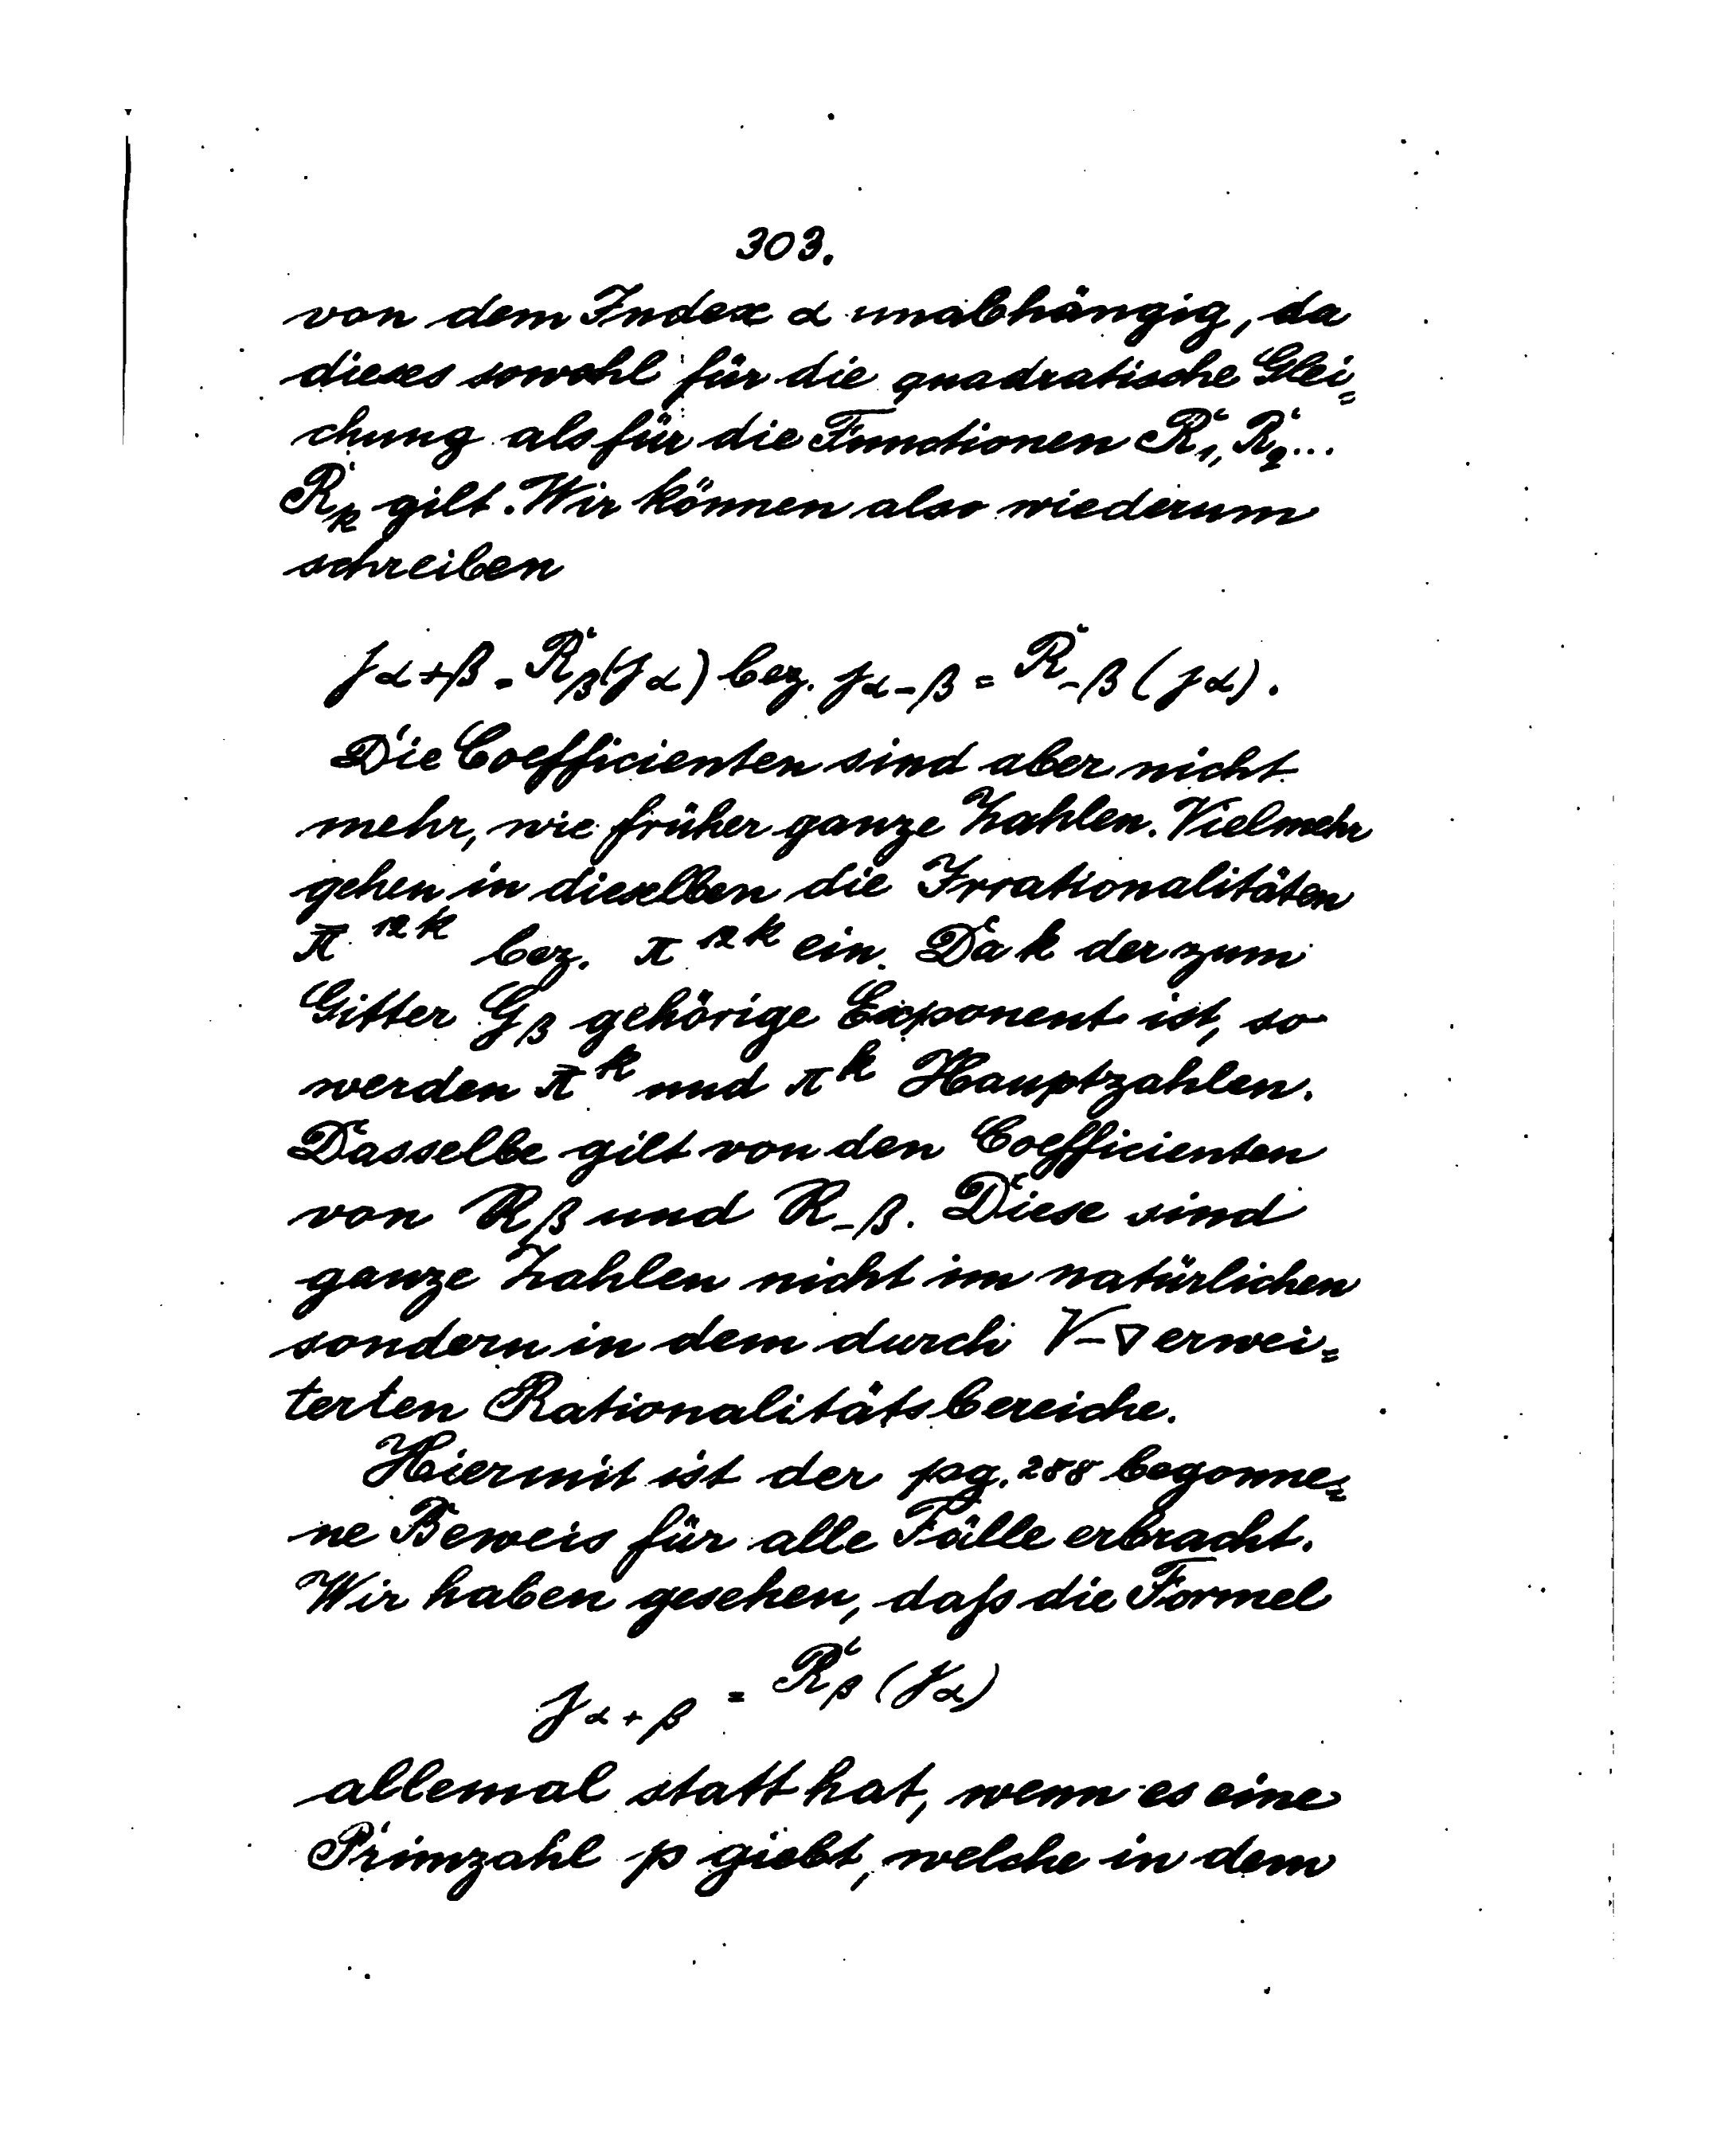 303.
von dem Index α unabhängig, da
dieses sowohl für die quadratische Glei=
chung als für die Functionen R₁, R₂...
R_k gilt. Wir können also wiederum
schreiben
j_{α+β} = R_β(j_α) bez. j_{α-β} = R_{-β}(j_α).
Die Coefficienten sind aber nicht
mehr, wie früher ganze Zahlen. Vielmehr
gehen in dieselben die Irrationalitäten
π̄^{12k} bez. π^{12k} ein. Da k der zum
Gitter G_β gehörige Exponent ist, so
werden π̄^k und π^k Hauptzahlen.
Dasselbe gilt von den Coefficienten
von R_β und R_{-β}. Diese sind
ganze Zahlen nicht im natürlichen
sondern in dem durch √-∇ erwei=
terten Rationalitätsbereiche.
Hiermit ist der pg. 288 begonne=
ne Beweis für alle Fälle erbracht.
Wir haben gesehen, daß die Formel
j_{α+β} = R_β(j_α)
allemal statt hat, wenn es eine
Primzahl p giebt, welche in dem